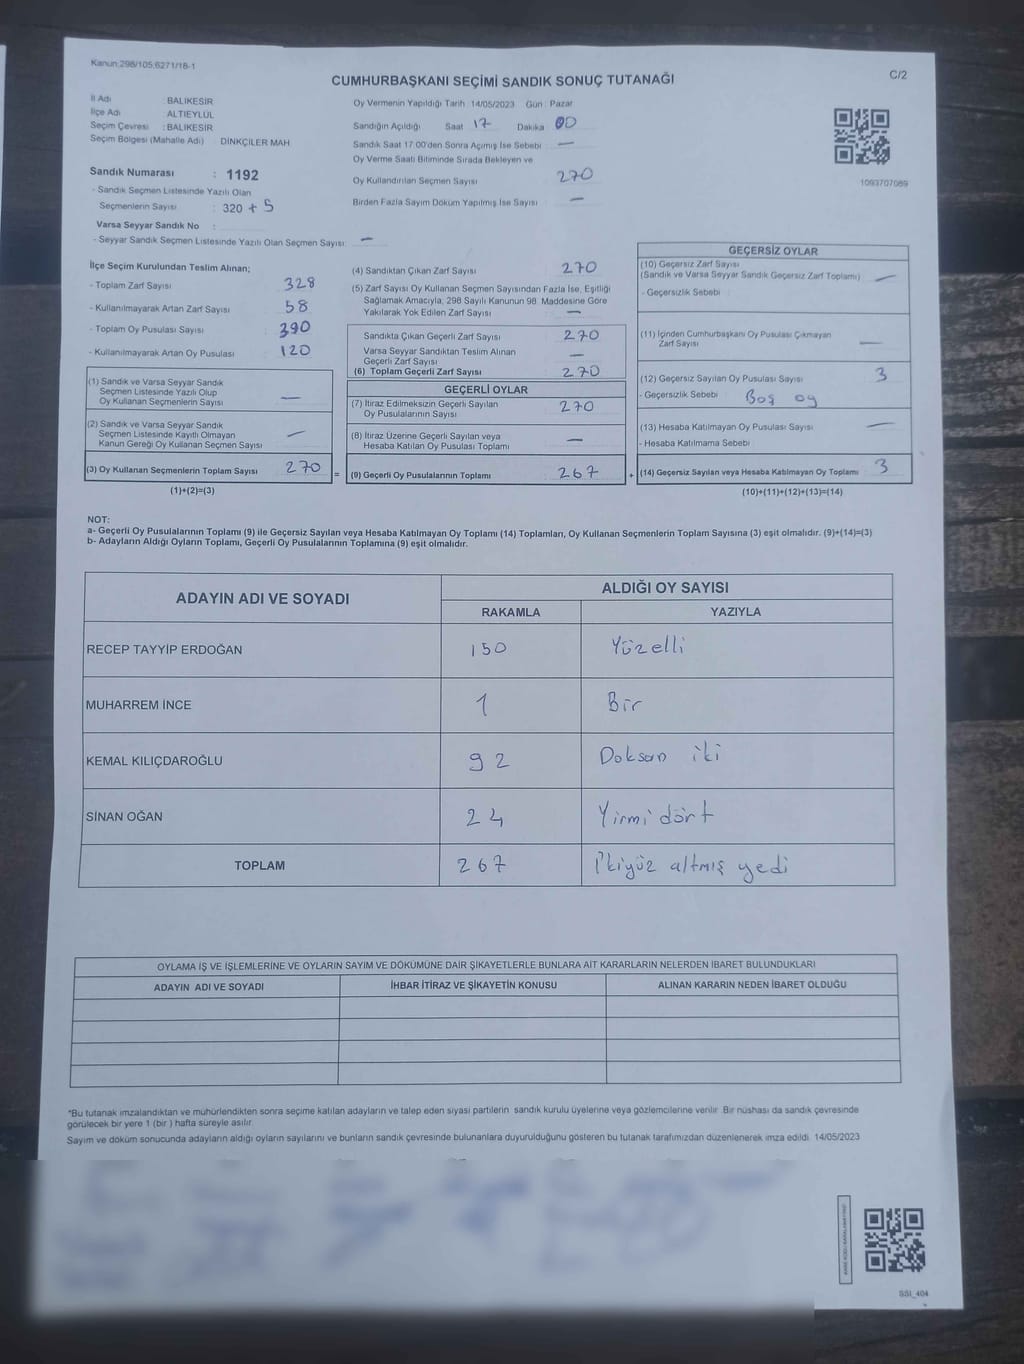 Kanun:298/105,6271/18-1
C/2
CUMHURBAŞKANI SEÇİMİ SANDIK SONUÇ TUTANAĞI
İl Adı : BALIKESİR
İlçe Adı : ALTIEYLÜL
Seçim Çevresi : BALIKESİR
Seçim Bölgesi (Mahalle Adı) DİNKÇİLER MAH
Sandık Numarası : 1192
- Sandık Seçmen Listesinde Yazılı Olan
Seçmenlerin Sayısı : 320 + 5
Varsa Seyyar Sandık No :
- Seyyar Sandık Seçmen Listesinde Yazılı Olan Seçmen Sayısı: —
Oy Vermenin Yapıldığı Tarih 14/05/2023 Gün: Pazar
Sandığın Açıldığı Saat 17 Dakika 00
Sandık Saat 17.00'den Sonra Açımış İse Sebebi : —
Oy Verme Saati Bitiminde Sırada Bekleyen ve
Oy Kullandırılan Seçmen Sayısı : 270
Birden Fazla Sayım Döküm Yapılmış İse Sayısı : —
1093707069
İlçe Seçim Kurulundan Teslim Alınan;
- Toplam Zarf Sayısı : 328
- Kullanılmayarak Artan Zarf Sayısı : 58
- Toplam Oy Pusulası Sayısı : 390
- Kullanılmayarak Artan Oy Pusulası : 120
(1) Sandık ve Varsa Seyyar Sandık
Seçmen Listesinde Yazılı Olup
Oy Kullanan Seçmenlerin Sayısı —
(2) Sandık ve Varsa Seyyar Sandık
Seçmen Listesinde Kayıtlı Olmayan
Kanun Gereği Oy Kullanan Seçmen Sayısı —
(3) Oy Kullanan Seçmenlerin Toplam Sayısı 270
(1)+(2)=(3)
(4) Sandıktan Çıkan Zarf Sayısı : 270
(5) Zarf Sayısı Oy Kullanan Seçmen Sayısından Fazla İse, Eşitliği
Sağlamak Amacıyla, 298 Sayılı Kanunun 98. Maddesine Göre
Yakılarak Yok Edilen Zarf Sayısı : —
Sandıkta Çıkan Geçerli Zarf Sayısı : 270
Varsa Seyyar Sandıktan Teslim Alınan
Geçerli Zarf Sayısı : —
(6) Toplam Geçerli Zarf Sayısı : 270
GEÇERLİ OYLAR
(7) İtiraz Edilmeksizin Geçerli Sayılan
Oy Pusulalarının Sayısı : 270
(8) İtiraz Üzerine Geçerli Sayılan veya
Hesaba Katılan Oy Pusulası Toplamı : —
=
(9) Geçerli Oy Pusulalarının Toplamı : 267
GEÇERSİZ OYLAR
(10) Geçersiz Zarf Sayısı
(Sandık ve Varsa Seyyar Sandık Geçersiz Zarf Toplamı) : —
- Geçersizlik Sebebi :
(11) İçinden Cumhurbaşkanı Oy Pusulası Çıkmayan
Zarf Sayısı : —
(12) Geçersiz Sayılan Oy Pusulası Sayısı : 3
- Geçersizlik Sebebi : Boş oy
(13) Hesaba Katılmayan Oy Pusulası Sayısı : —
- Hesaba Katılmama Sebebi :
+
(14) Geçersiz Sayılan veya Hesaba Katılmayan Oy Toplamı : 3
(10)+(11)+(12)+(13)=(14)
NOT:
a- Geçerli Oy Pusulalarının Toplamı (9) ile Geçersiz Sayılan veya Hesaba Katılmayan Oy Toplamı (14) Toplamları, Oy Kullanan Seçmenlerin Toplam Sayısına (3) eşit olmalıdır. (9)+(14)=(3)
b- Adayların Aldığı Oyların Toplamı, Geçerli Oy Pusulalarının Toplamına (9) eşit olmalıdır.
ADAYIN ADI VE SOYADI ALDIĞI OY SAYISI
RAKAMLA YAZIYLA
RECEP TAYYİP ERDOĞAN 150 Yüzelli
MUHARREM İNCE 1 Bir
KEMAL KILIÇDAROĞLU 92 Doksan iki
SİNAN OĞAN 24 Yirmi dört
TOPLAM 267 İkiyüz altmış yedi
OYLAMA İŞ VE İŞLEMLERİNE VE OYLARIN SAYIM VE DÖKÜMÜNE DAİR ŞİKAYETLERLE BUNLARA AİT KARARLARIN NELERDEN İBARET BULUNDUKLARI
ADAYIN ADI VE SOYADI İHBAR İTİRAZ VE ŞİKAYETİN KONUSU ALINAN KARARIN NEDEN İBARET OLDUĞU
*Bu tutanak imzalandıktan ve mühürlendikten sonra seçime katılan adayların ve talep eden siyasi partilerin sandık kurulu üyelerine veya gözlemcilerine verilir. Bir nüshası da sandık çevresinde
görülecek bir yere 1 (bir ) hafta süreyle asılır.
Sayım ve döküm sonucunda adayların aldığı oyların sayılarını ve bunların sandık çevresinde bulunanlara duyurulduğunu gösteren bu tutanak tarafımızdan düzenlenerek imza edildi. 14/05/2023
SSI_404